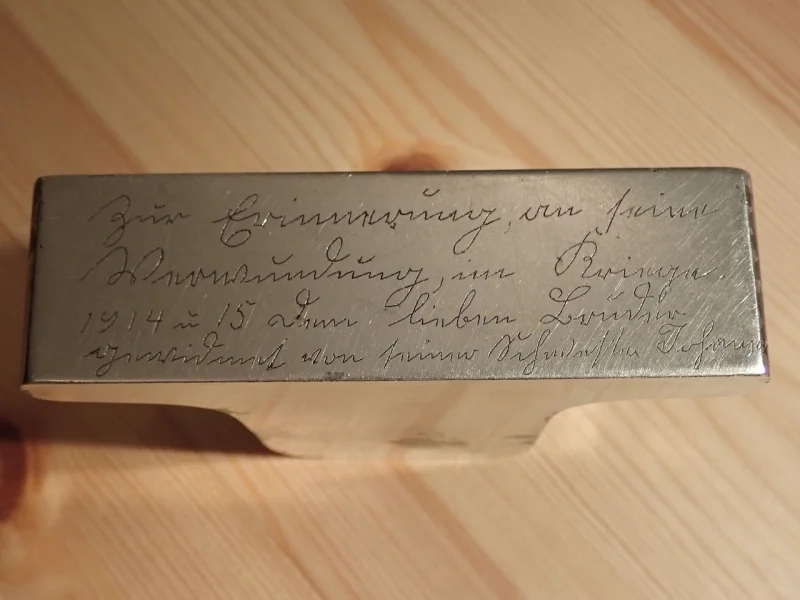 Zur Erinnerung, an seine
Verwundung, im Kriege.
1914 u 15 dem lieben Bruder
gewidmet von seiner Schwester Johanna